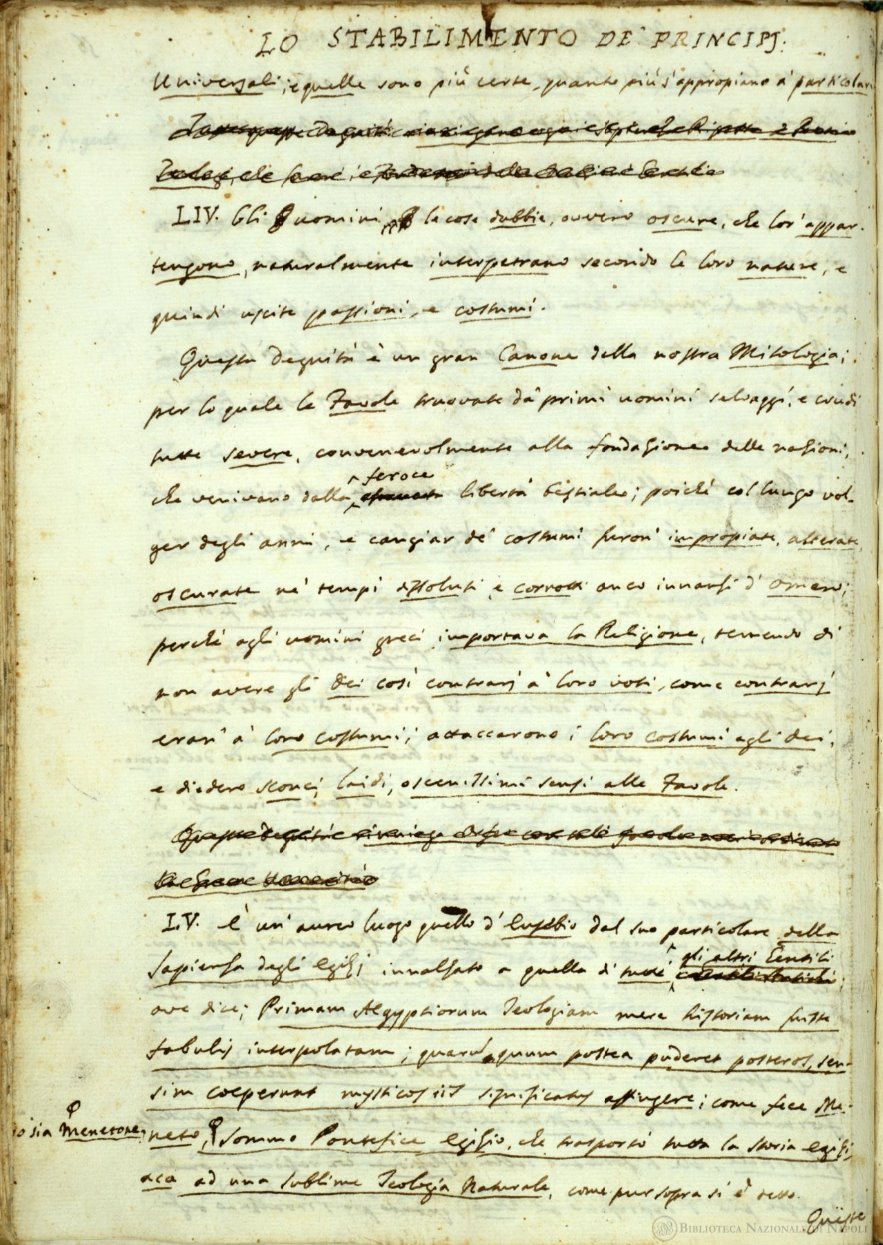 LO STABILIMENTO DE' PRINCIPJ.
Universali; e quelle sono più certe, quanto più s'appropiano a' particolari
LIV. Gli uomini le cose dubbie, ovvero oscure, che lor' appar-
tengono, naturalmente interpetrano secondo le loro nature, e
quindi uscite passioni, e costumi.
Questa Degnità è un gran Canone della nostra Mitologia;
per lo quale le Favole truovate da' primi uomini selvaggi, e crudi
tutte severe, convenevolmente alla fondazione delle nazioni,
che venivano dalla feroce libertà bestiale; poichè col lungo vol-
ger degli anni, e cangiar de' costumi furon' impropiate, alterate,
oscurate ne' tempi dissoluti, e corrotti anco innanzi d' Omero;
perchè agli uomini greci importava la Religione, temendo di
non avere gli Dei così contrarj a' loro voti, come contrarj
eran' a' loro costumi; attaccarono i loro costumi agli Dei,
e diedero sconci, laidi, oscenissimi sensi alle Favole.
LV. è un' aureo luogo quello d' Eusebio dal suo particolare della
Sapienza degli Egizj innalzato a quella di tutti gli altri Gentili
ove dice; Primam Aegyptiorum Teologiam mere historiam fuisse
fabulis interpolatam; quarum quum postea puderet posteros, sen-
sim coeperunt mysticos iis significatus affingere; come fece Ma-
o sia Menetone,
neto, Sommo Pontefice Egizio, che trasportò tutta la storia egizi-
aca ad una sublime Teologia Naturale, come pur sopra si è detto.
Queste
BIBLIOTECA NAZIONALE DI NAPOLI